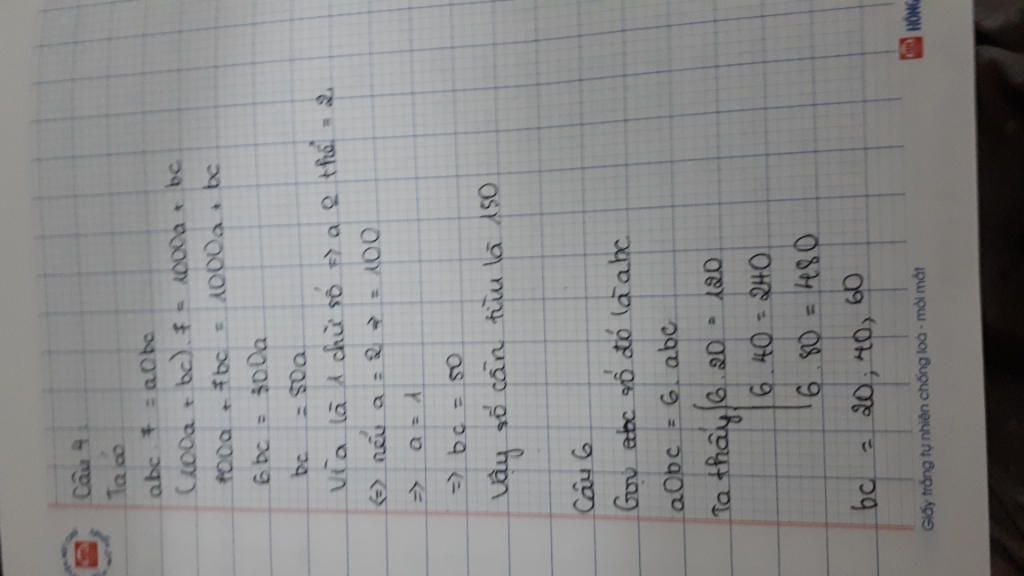 Câu 4
Ta có
abc . 7 = a0bc
(100a + bc) . 7 = 1000a + bc
700a + 7bc = 1000a + bc
6bc = 300a
bc = 50a
Vì a là 1 chữ số => a
<=> nếu a = 2 => = 100
=> a = 1
=> bc = 50
Vậy số cần tìm là 150
Câu 6
Gọi số đó là abc
a0bc = 6 . abc
Ta thấy 6 . 20 = 120
6 . 40 = 240
6 . 80 = 480
bc = 20 ; 40 ; 60
Giấy trắng tự nhiên chống loá - mỏi mắt